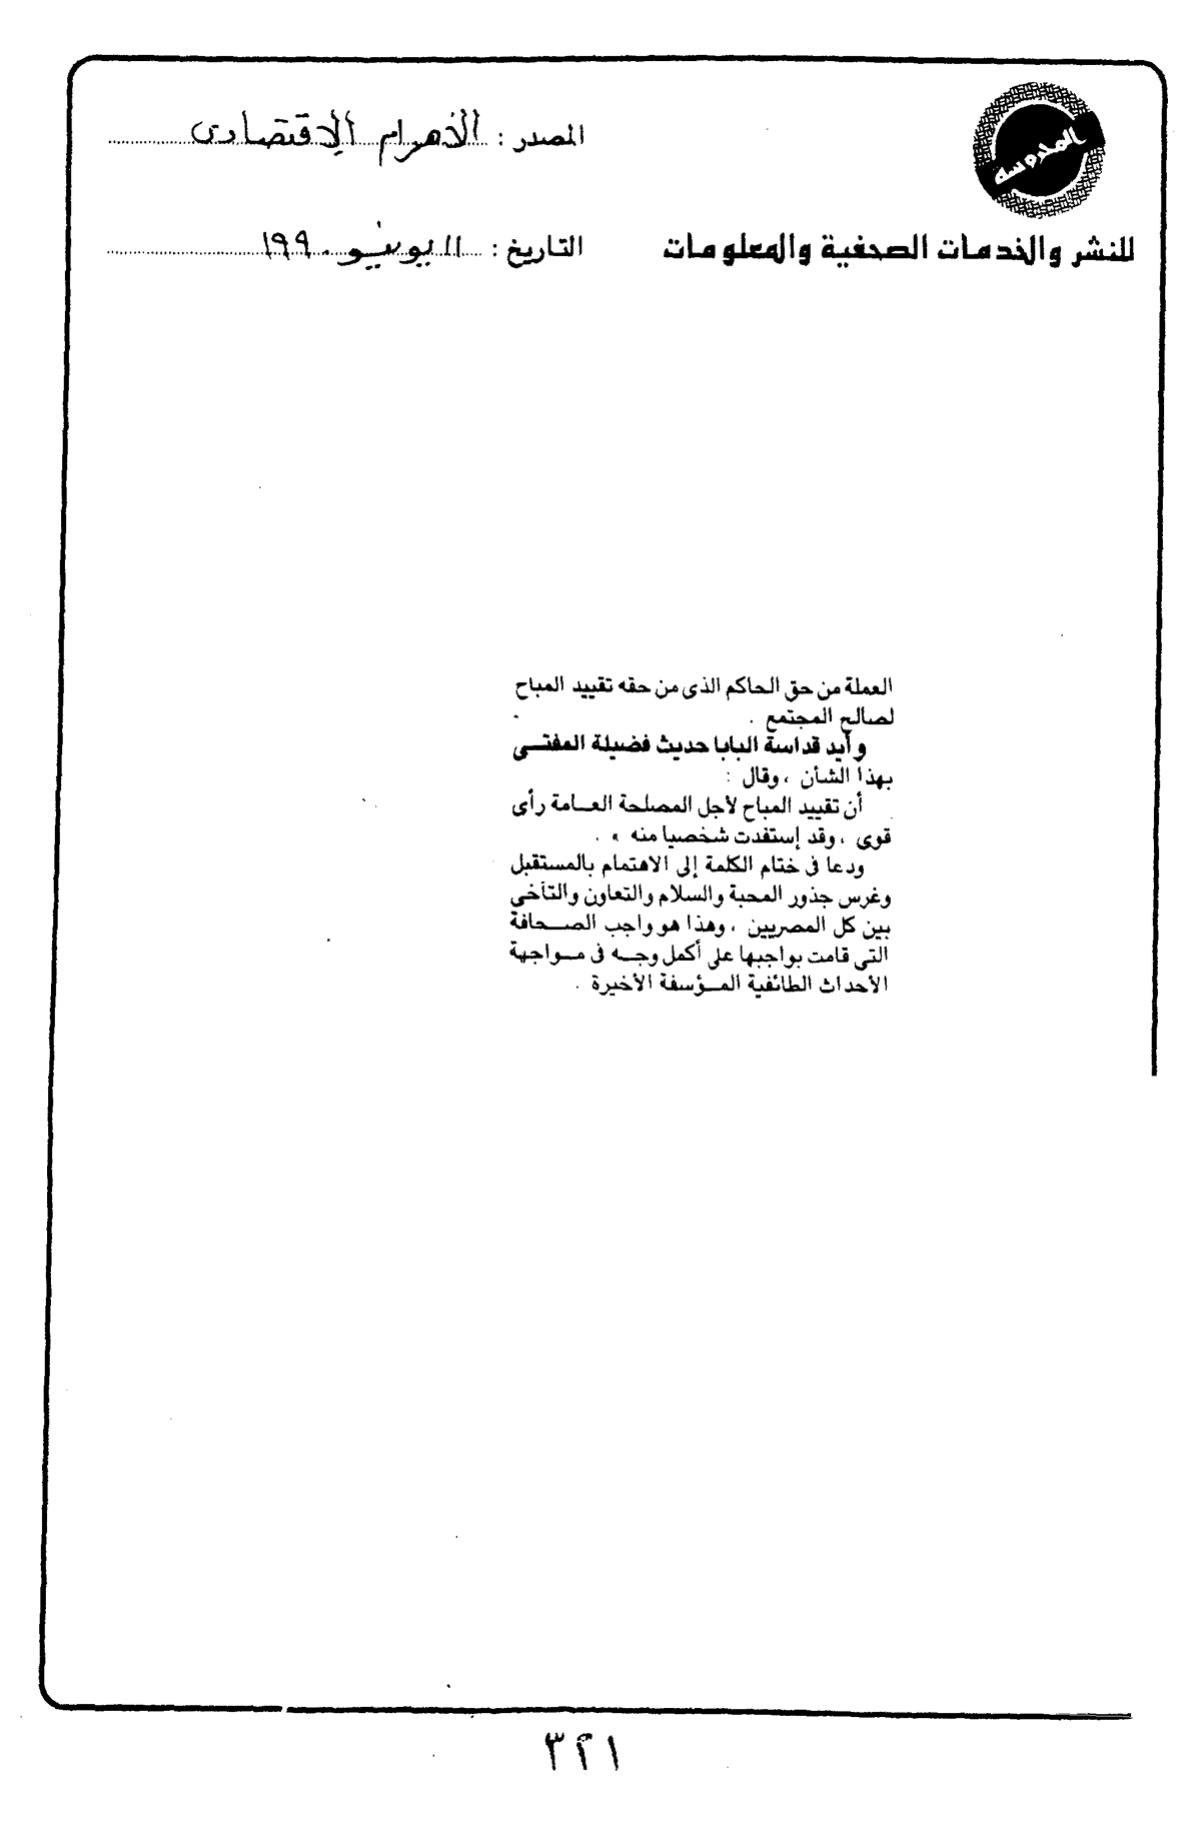 المحروسة
المصدر : الأهرام الاقتصادى
للنشر والخدمات الصحفية والمعلومات
التاريخ : ١١ يونيو ١٩٩٠
العملة من حق الحاكم الذى من حقه تقييد المباح
لصالح المجتمع .
وأيد قداسة البابا حديث فضيلة المفتــى
بهذا الشأن ، وقال :
أن تقييد المباح لأجل المصلحة العــامة رأى
قوى ، وقد إستفدت شخصيا منه » .
ودعا فى ختام الكلمة إلى الاهتمام بالمستقبل
وغرس جذور المحبة والسلام والتعاون والتآخى
بين كل المصريين ، وهذا هو واجب الصــحافة
التى قامت بواجبها على أكمل وجــه فى مــواجهة
الأحداث الطائفية المــؤسفة الأخيرة .